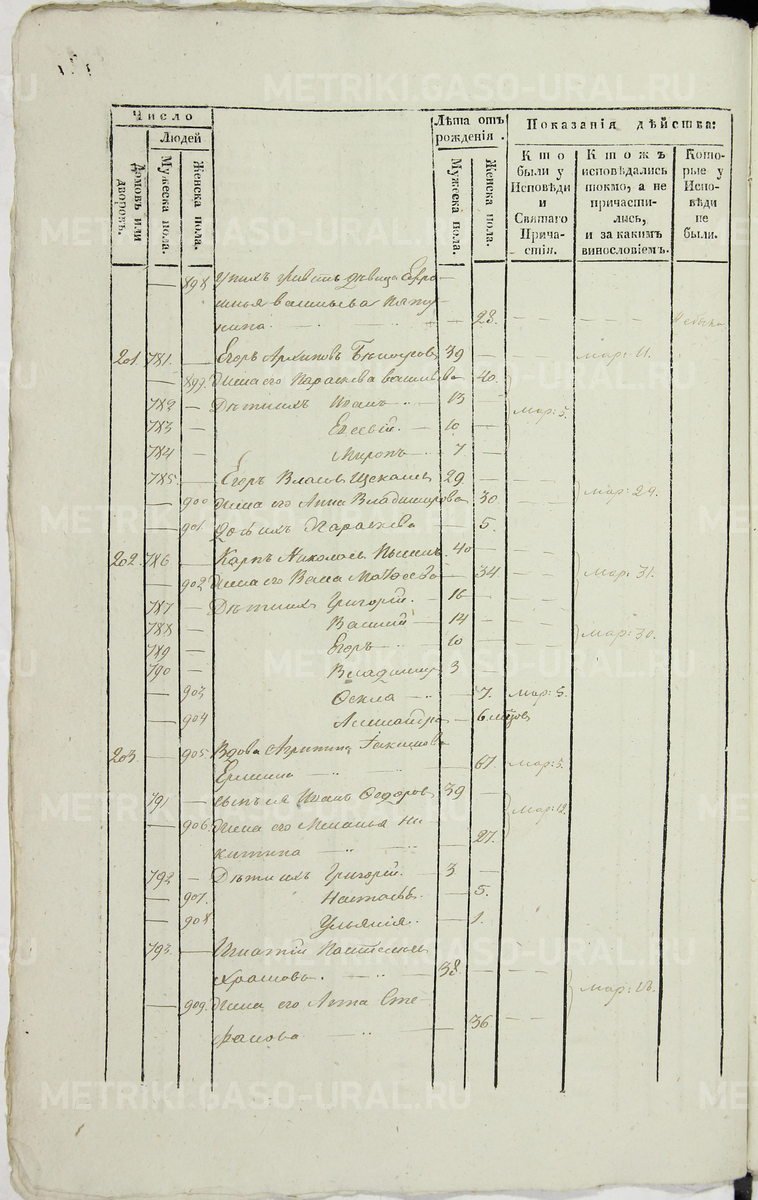 METRIKI.GASO-URAL.RU
Число
Людей
Домовъ или дворовъ.
Мужеска пола.
Женска пола.
Лѣта отъ рожденія.
Мужеска пола.
Женска пола.
Показанія дѣйства:
Кто были у Исповѣди и Святаго Причастія.
Ктожъ исповѣдались токмо, а не причастились, и за какимъ винословіемъ.
Которые у Исповѣди не были.
898 У нихъ дѣвица Ефро-
синья Васильева
28.
201. 781. Егоръ Архиповъ 39 Мар: 11.
899. Жена его Параскева Васильева 40.
782 Дѣти ихъ Иванъ 13 Мар: 5.
783 Елесѣй 10
784 Миронъ 7
785 Егоръ Власовъ 29
900 Жена его Анна Владимирова 30 Мар: 29.
901. Дочь ихъ Параскева 5.
202. 786 Карпъ Николаевъ 40
902 Жена его Васса Матѳеева 34 Мар: 31.
787 Дѣти ихъ Григорій 16
788 Василій 14 Мар: 30.
789 Егоръ 10
790 Владимиръ 3
903 Ѳекла 7. Мар: 5.
904 Александра 6
203. 905 Вдова
67. Мар: 5.
791 сынъ ея Иванъ Ѳедоровъ 39 Мар: 12.
906 Жена его Меланья Ни-
китина 27.
792 Дѣти ихъ Григорій 3
907. 5.
908 Ульянія 1.
793. Игнатій
38
Мар: 18.
909. Жена его Анна Сте-
фанова 36